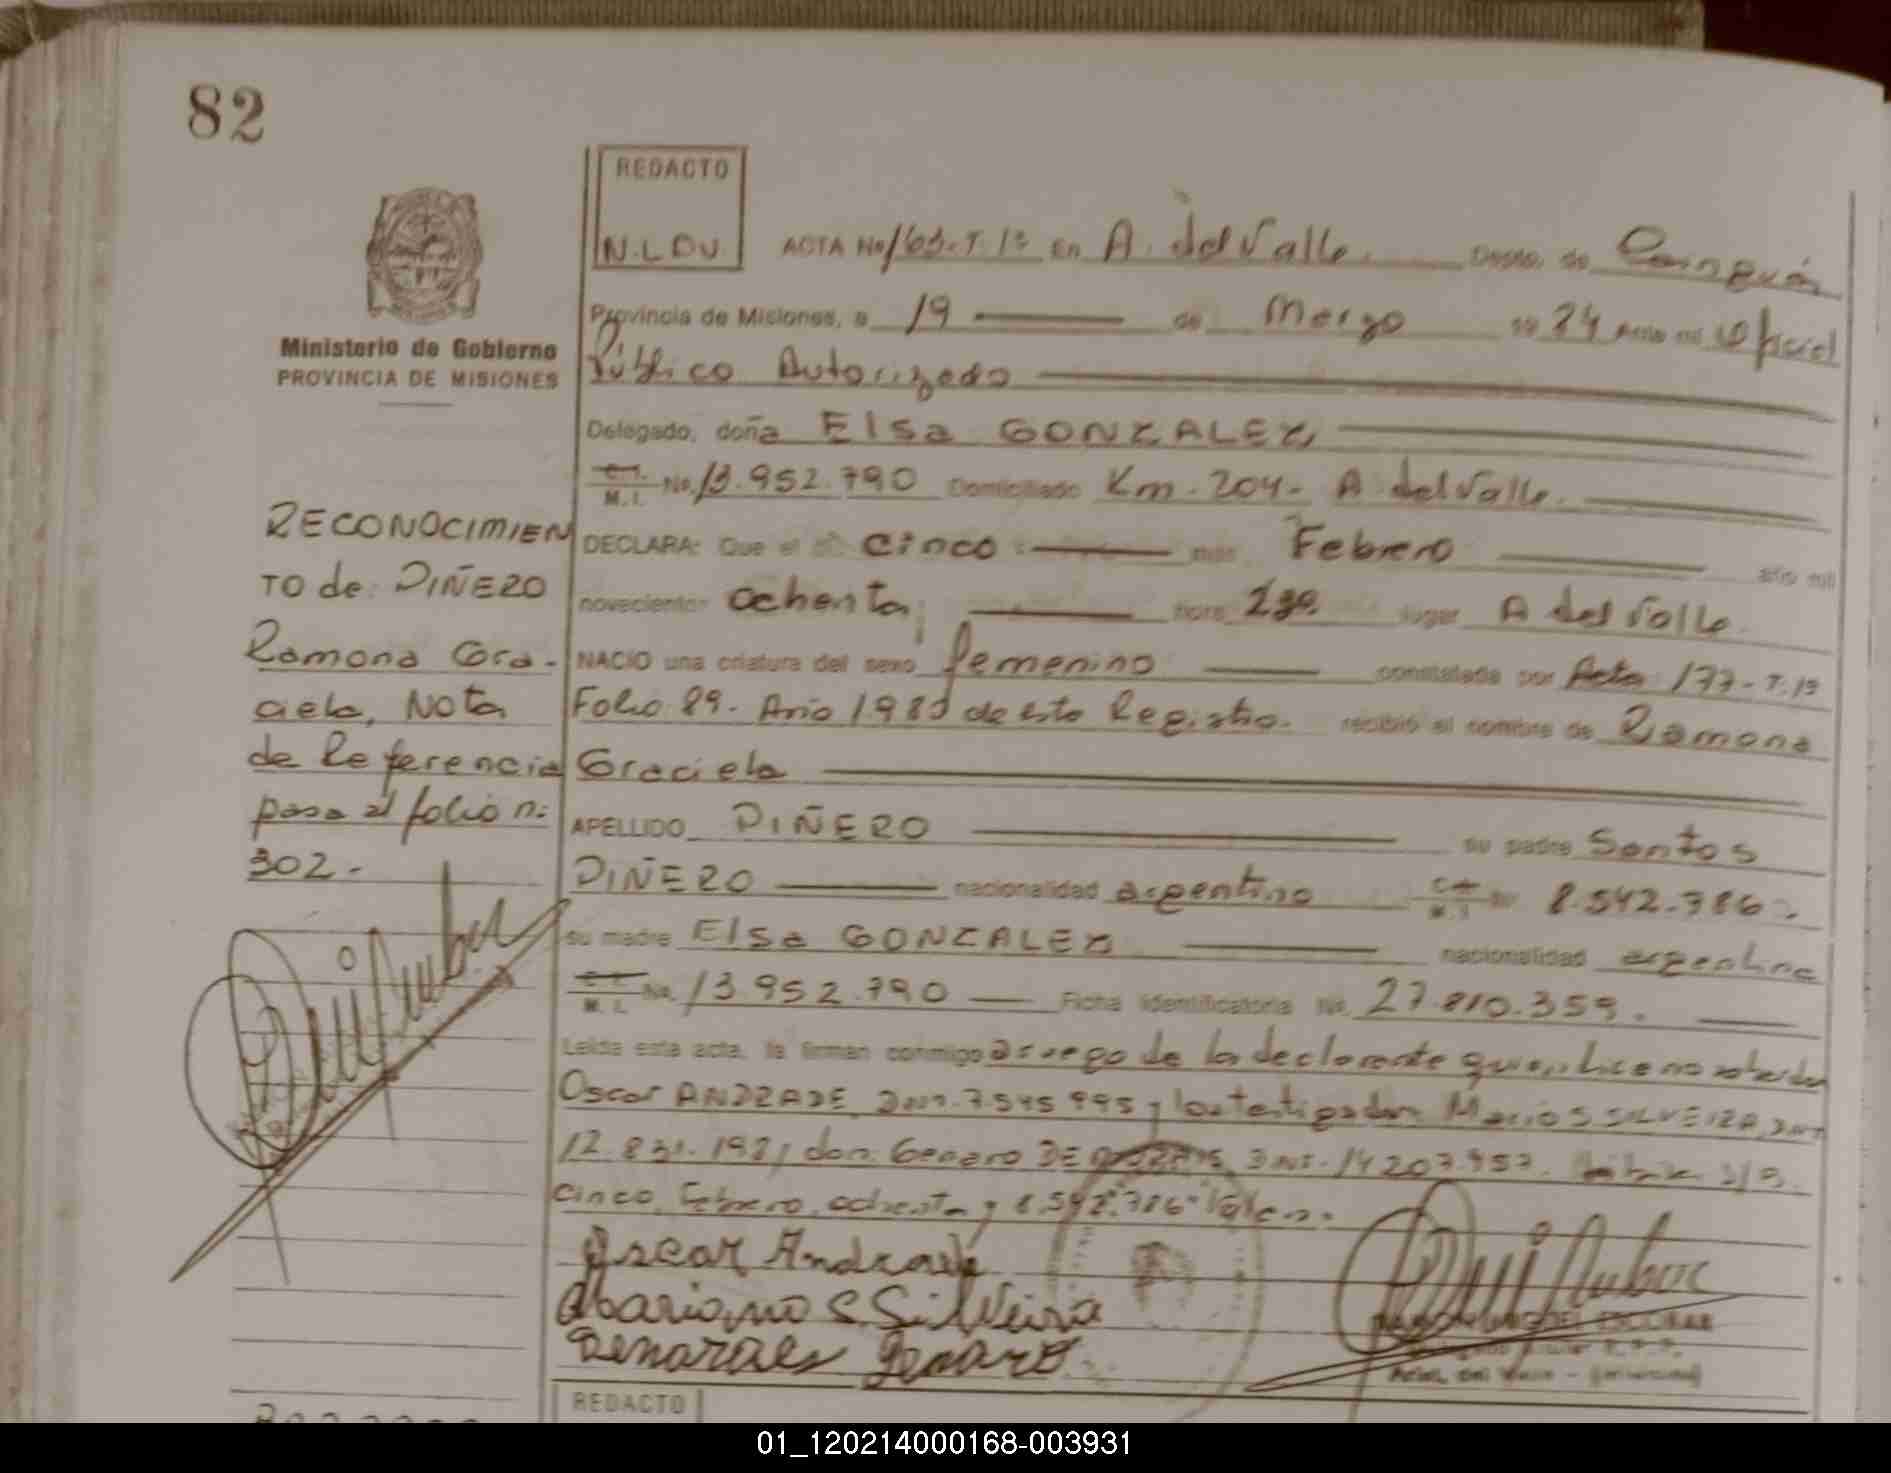 82
REDACTO
N.L DV.
ACTA No 163-T.1º en A. del Valle. Depto. de Cainguás
Provincia de Misiones, a 19 de Marzo 19 84 Ante mí Oficial
Ministerio de Gobierno
PROVINCIA DE MISIONES
Público Autorizado
Delegado, doña Elsa GONZALEZ,
C.I. M.I. No. 13.952.790 Domiciliado Km. 204- A. del Valle.
RECONOCIMIEN
TO de: PIÑERO
Ramona Gra-
ciela, Nota
de Referencia
pasa al folio n:
302-
DECLARA: Que el cinco mes Febrero año mil
novecientos ochenta, hora 2 lugar A del Valle.
NACIO una criatura del sexo femenino constatada por Acta 177-T.1º
Folio 89- Año 1980 de este Registro. recibió el nombre de Ramona
Graciela
APELLIDO PIÑERO su padre Santos
PIÑERO nacionalidad argentino M.I. 8.542.786.
su madre Elsa GONZALEZ nacionalidad argentina
M.I. No. 13.952.790 Ficha Identificatoria No. 27.810.359.
Leída esta acta, la firman conmigo a ruego de la declarante quien dice no saber
Oscar ANDRADE, DNI. 7.545.995 y los testigos don Mario S SILVEIRA, DNI
12.831.198, don: Genaro DE DNI. 14.207.957.
cinco, Febrero, ochenta y 8.542.786 Valen.
Oscar Andrade
Mariano S. Silveira
Genaro
REDACTO
01_120214000168-003931